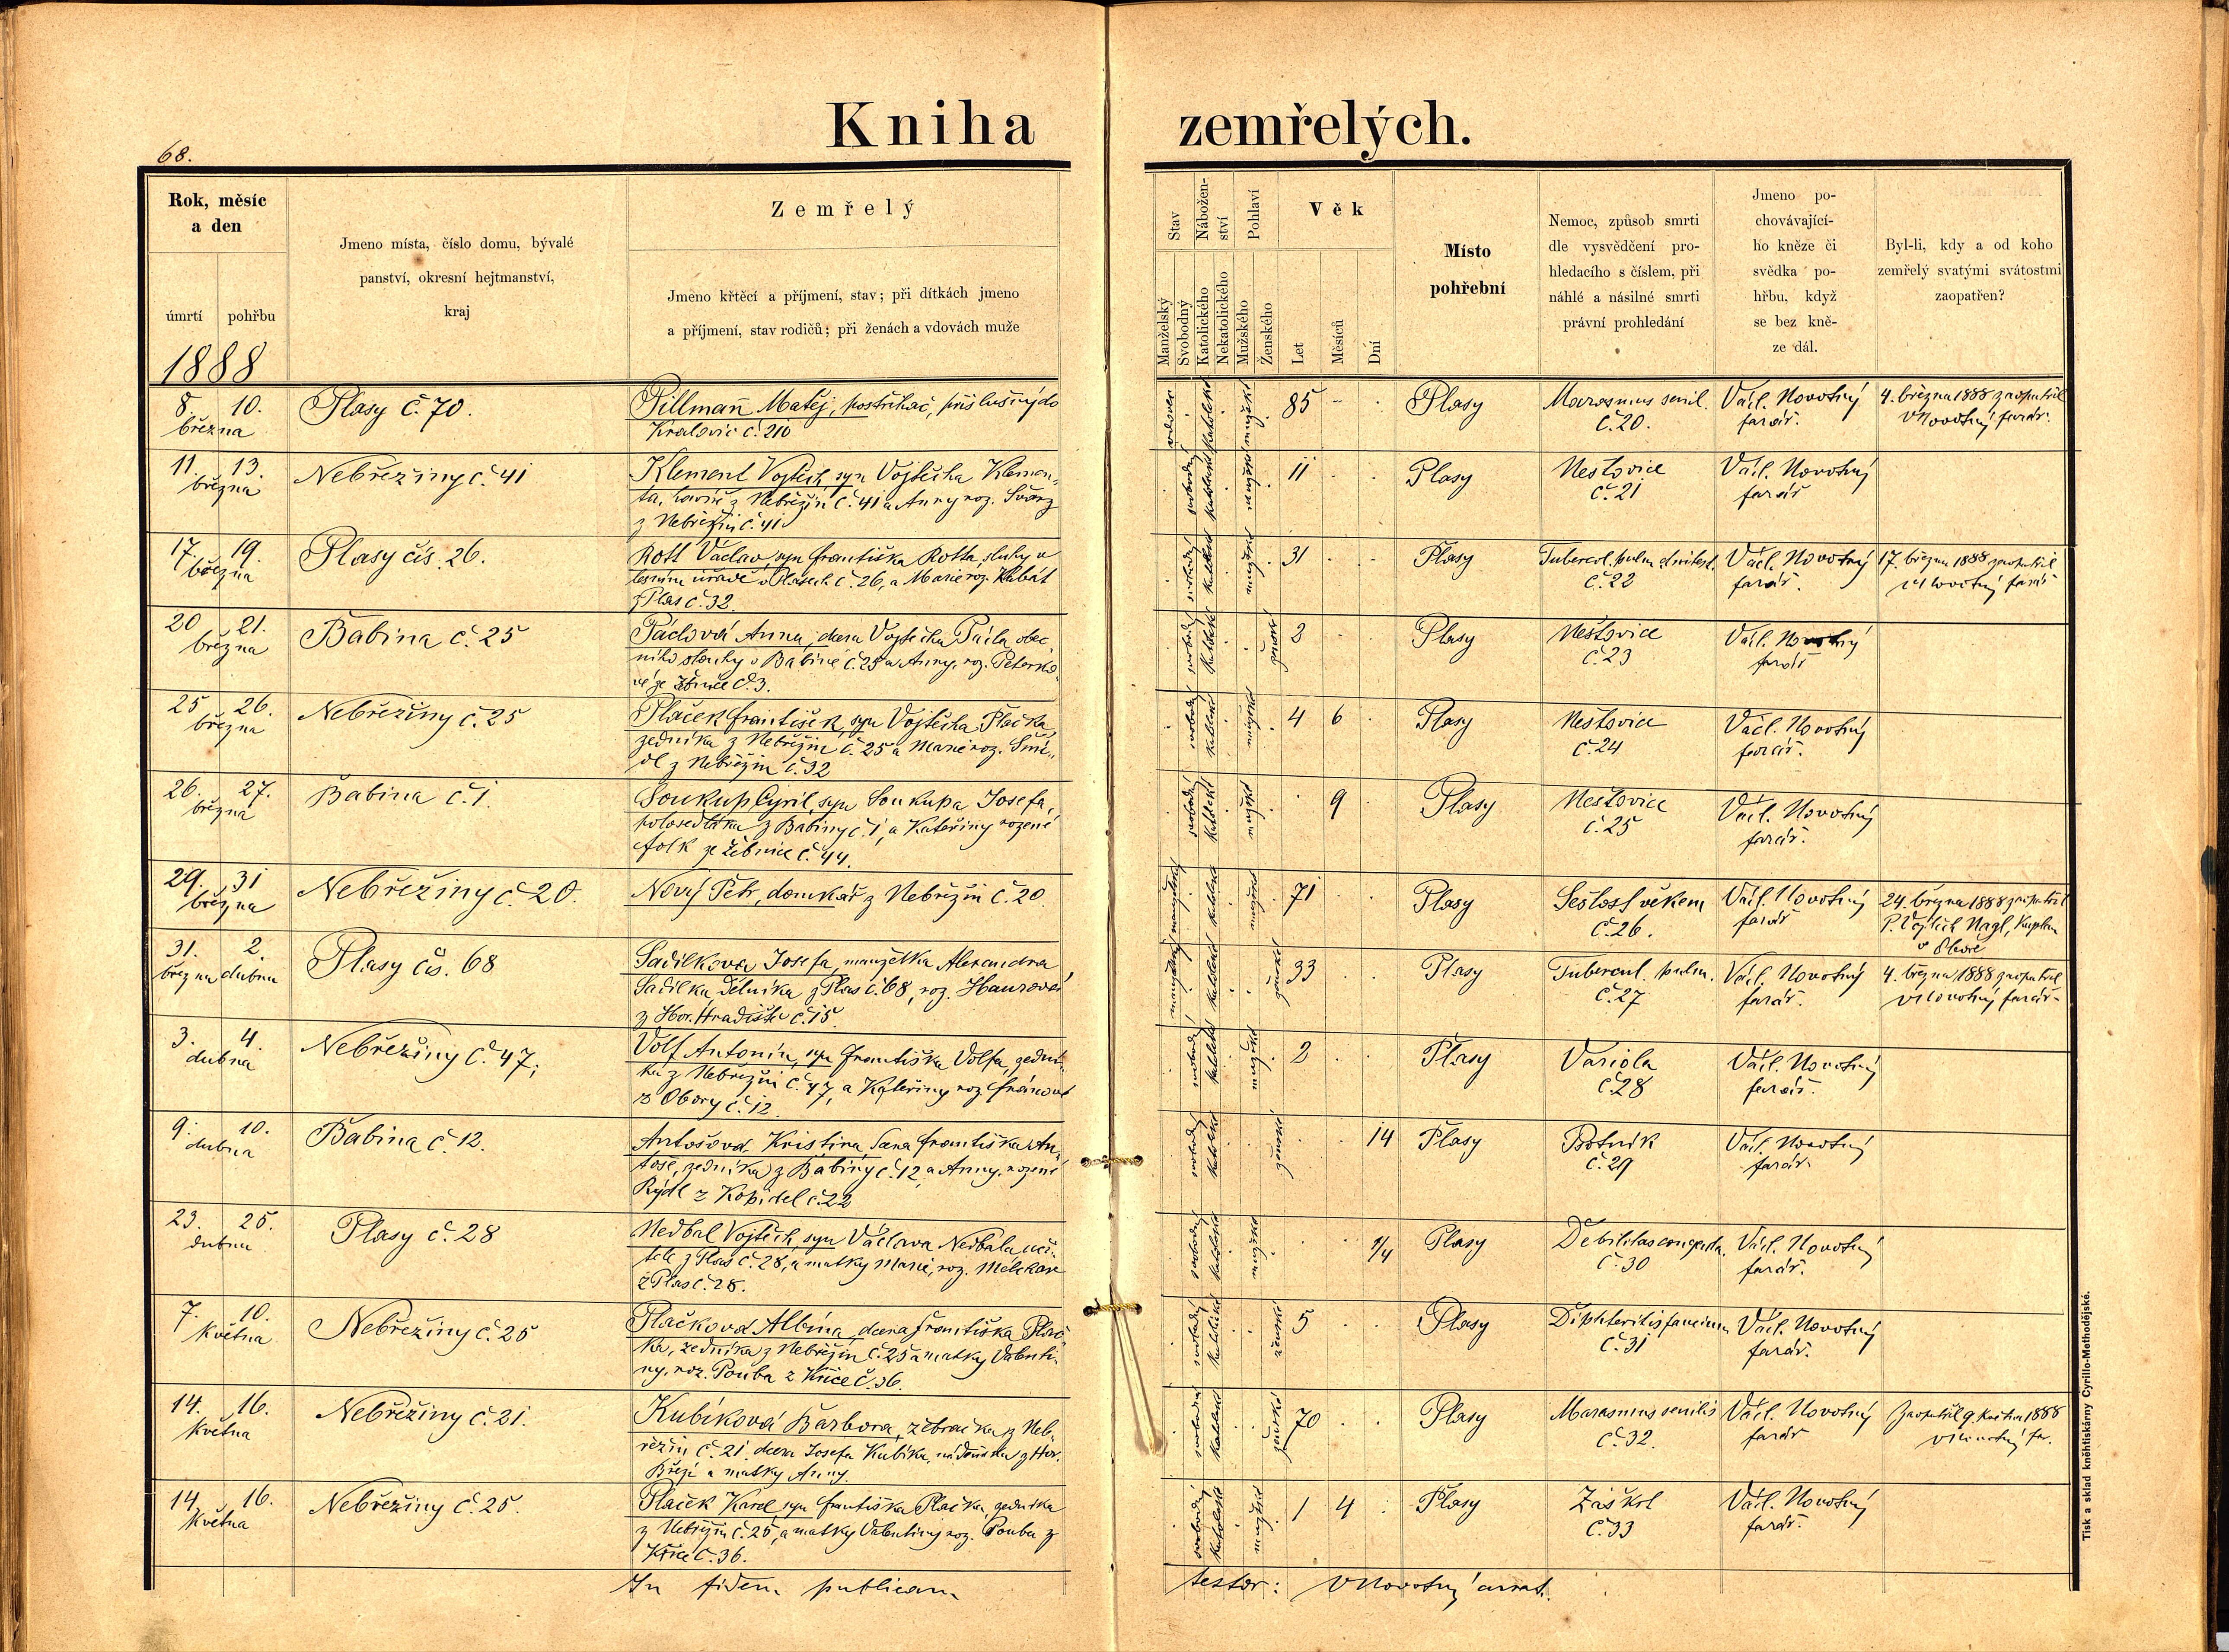 68.
Kniha zemřelých.
Rok, měsíc
a den
úmrtí pohřbu
1888
Jmeno místa, číslo domu, bývalé
panství, okresní hejtmanství,
kraj
Zemřelý
Jmeno křtěcí a příjmení, stav; při dítkách jmeno
a příjmení, stav rodičů; při ženách a vdovách muže
Stav
Nábožen-
ství
Pohlaví
Věk
Manželský
Svobodný
Katolického
Nekatolického
Mužského
Ženského
Let
Měsíců
Dní
Místo
pohřební
Nemoc, způsob smrti
dle vysvědčení pro-
hledacího s číslem, při
náhlé a násilné smrti
právní prohledání
Jmeno po-
chovávající-
ho kněze či
svědka po-
hřbu, když
se bez kně-
ze dál.
Byl-li, kdy a od koho
zemřelý svatými svátostmi
zaopatřen?
8. 10.
března
Plasy č. 70.
Pillman Matěj, postřihač, příslušný do
Kralovic č. 210
vdovec katolické mužské 85 Plasy
Marasmus senil.
č. 20.
Václ. Novotný
farář.
4. března 1888 zaopatřil
VNovotný farář.
11. 13.
března
Nebřeziny č. 41
Klement Vojtěch, syn Vojtěcha Klemen-
ta, z Nebřezin č. 41 a Anny roz. Švarz
z Nebřezin č. 41
svobodný katolické mužské 11 Plasy
Neštovice
č. 21
Václ. Novotný
farář
17. 19.
března
Plasy čís. 26.
Rott Václav, syn Františka Rotta, sluhy v
lesním úřadě v Plasech č. 26, a Marie roz. Krbát
z Plas č. 32.
svobodný katolické mužské 31 Plasy
Tubercul. pulm.
č. 22
Václ. Novotný
farář.
17. března 1888 zaopatřil
VNovotný farář
20 21.
března
Babina č. 25
Páclová Anna, dcera Vojtěcha Pácla, obec-
ního sluhy v Babině č. 25 a Anny, roz. Petersko-
vé ze Žebnice č. 3.
svobodný katolické ženské 3 Plasy
Neštovice
č. 23
Václ. Novotný
farář
25 26.
března
Nebřeziny č. 25
Plaček František, syn Vojtěcha Plačka,
zedníka z Nebřezin č. 25 a Marie roz. Šmí-
dl z Nebřezin č. 32
svobodný katolické mužské 4 6 Plasy
Neštovice
č. 24
Václ. Novotný
farář.
26. 27.
března
Babina č. 1.
Soukup Cyril, syn Soukupa Josefa,
polosedláka z Babiny č. 1, a Kateřiny rozené
Folk ze Žebnice č. 44.
svobodný katolické mužské 9 Plasy
Neštovice
č. 25
Václ. Novotný
farář.
29. 31
března
Nebřežiny č. 20.
Nový Petr, domkář z Nebřezin č. 20.
manželský katolické mužské 71 Plasy
Sešlost věkem
č. 26.
Václ. Novotný
farář
24. března 1888 zaopatřil
P. Vojtěch Nagl, Kaplan
31. 2.
března dubna
Plasy čís. 68
Sadilkova Josefa, manželka Alexandra
Sadilka dělníka z Plas č. 68, roz. Haurové
z Hor. Hradiště č. 15.
manželský katolické ženské 33 Plasy
Tubercul. pulm.
č. 27
Václ. Novotný
farář.
4. března 1888 zaopatřil
VNovotný farář.
3. 4.
dubna
Nebřeziny č. 47,
Volf Antonín, syn Františka Volfa, zední-
ka z Nebřezin č. 47, a Kateřiny roz. Fránové
z Obory č. 12.
svobodný katolické mužské 2 Plasy
Variola
č. 28
Václ. Novotný
farář.
9. 10.
dubna
Babina č. 12.
Antošová Kristina, Františka An-
toše, zedníka z Babiny č. 12, a Anny, rozené
Rýdl z Kopidel č. 22
svobodný katolické ženské 14 Plasy
Psotník
č. 29
Václ. Novotný
farář.
23. 25.
dubna
Plasy č. 28
Nedbal Vojtěch, syn Václava Nedbala, uči-
tele z Plas č. 28, a matky Marie, roz.
z Plas č. 28.
svobodný katolické mužské 1/4 Plasy
Debilitas congenita.
č. 30
Václ. Novotný
farář.
7. 10.
Května
Nebřežiny č. 25
Plačková Albína, dcera Františka Plač-
ka, zedníka z Nebřezin č. 25 a matky Valenti-
ny, roz. Pouba z Křice č. 36.
svobodný katolické ženské 5 Plasy
Diphteritis faucium
č. 31
Václ. Novotný
farář.
14. 16.
Května
Nebřežiny č. 21.
Kubíková Barbora, žebračka z Neb-
řežin č. 21, dcera Josefa Kubíka, nádeníka z Hor.
Březí a matky Anny.
svobodná katolické ženské 70 Plasy
Marasmus senilis
č. 32.
Václ. Novotný
farář
Zaopatřil 9. Května 1888
VNovotný fa.
14. 16.
Května
Nebřeziny č. 25.
Plaček Karel, syn Františka Plačka, zedníka
z Nebřezin č. 25, a matky Valentiny roz. Pouba z
Křice č. 36.
svobodný katolické mužské 1 4 Plasy
Záškrt
č. 33
Václ. Novotný
farář.
In fidem publicam
testor: VNovotný
Tisk a sklad kněhtiskárny Cyrillo-Methodějské.